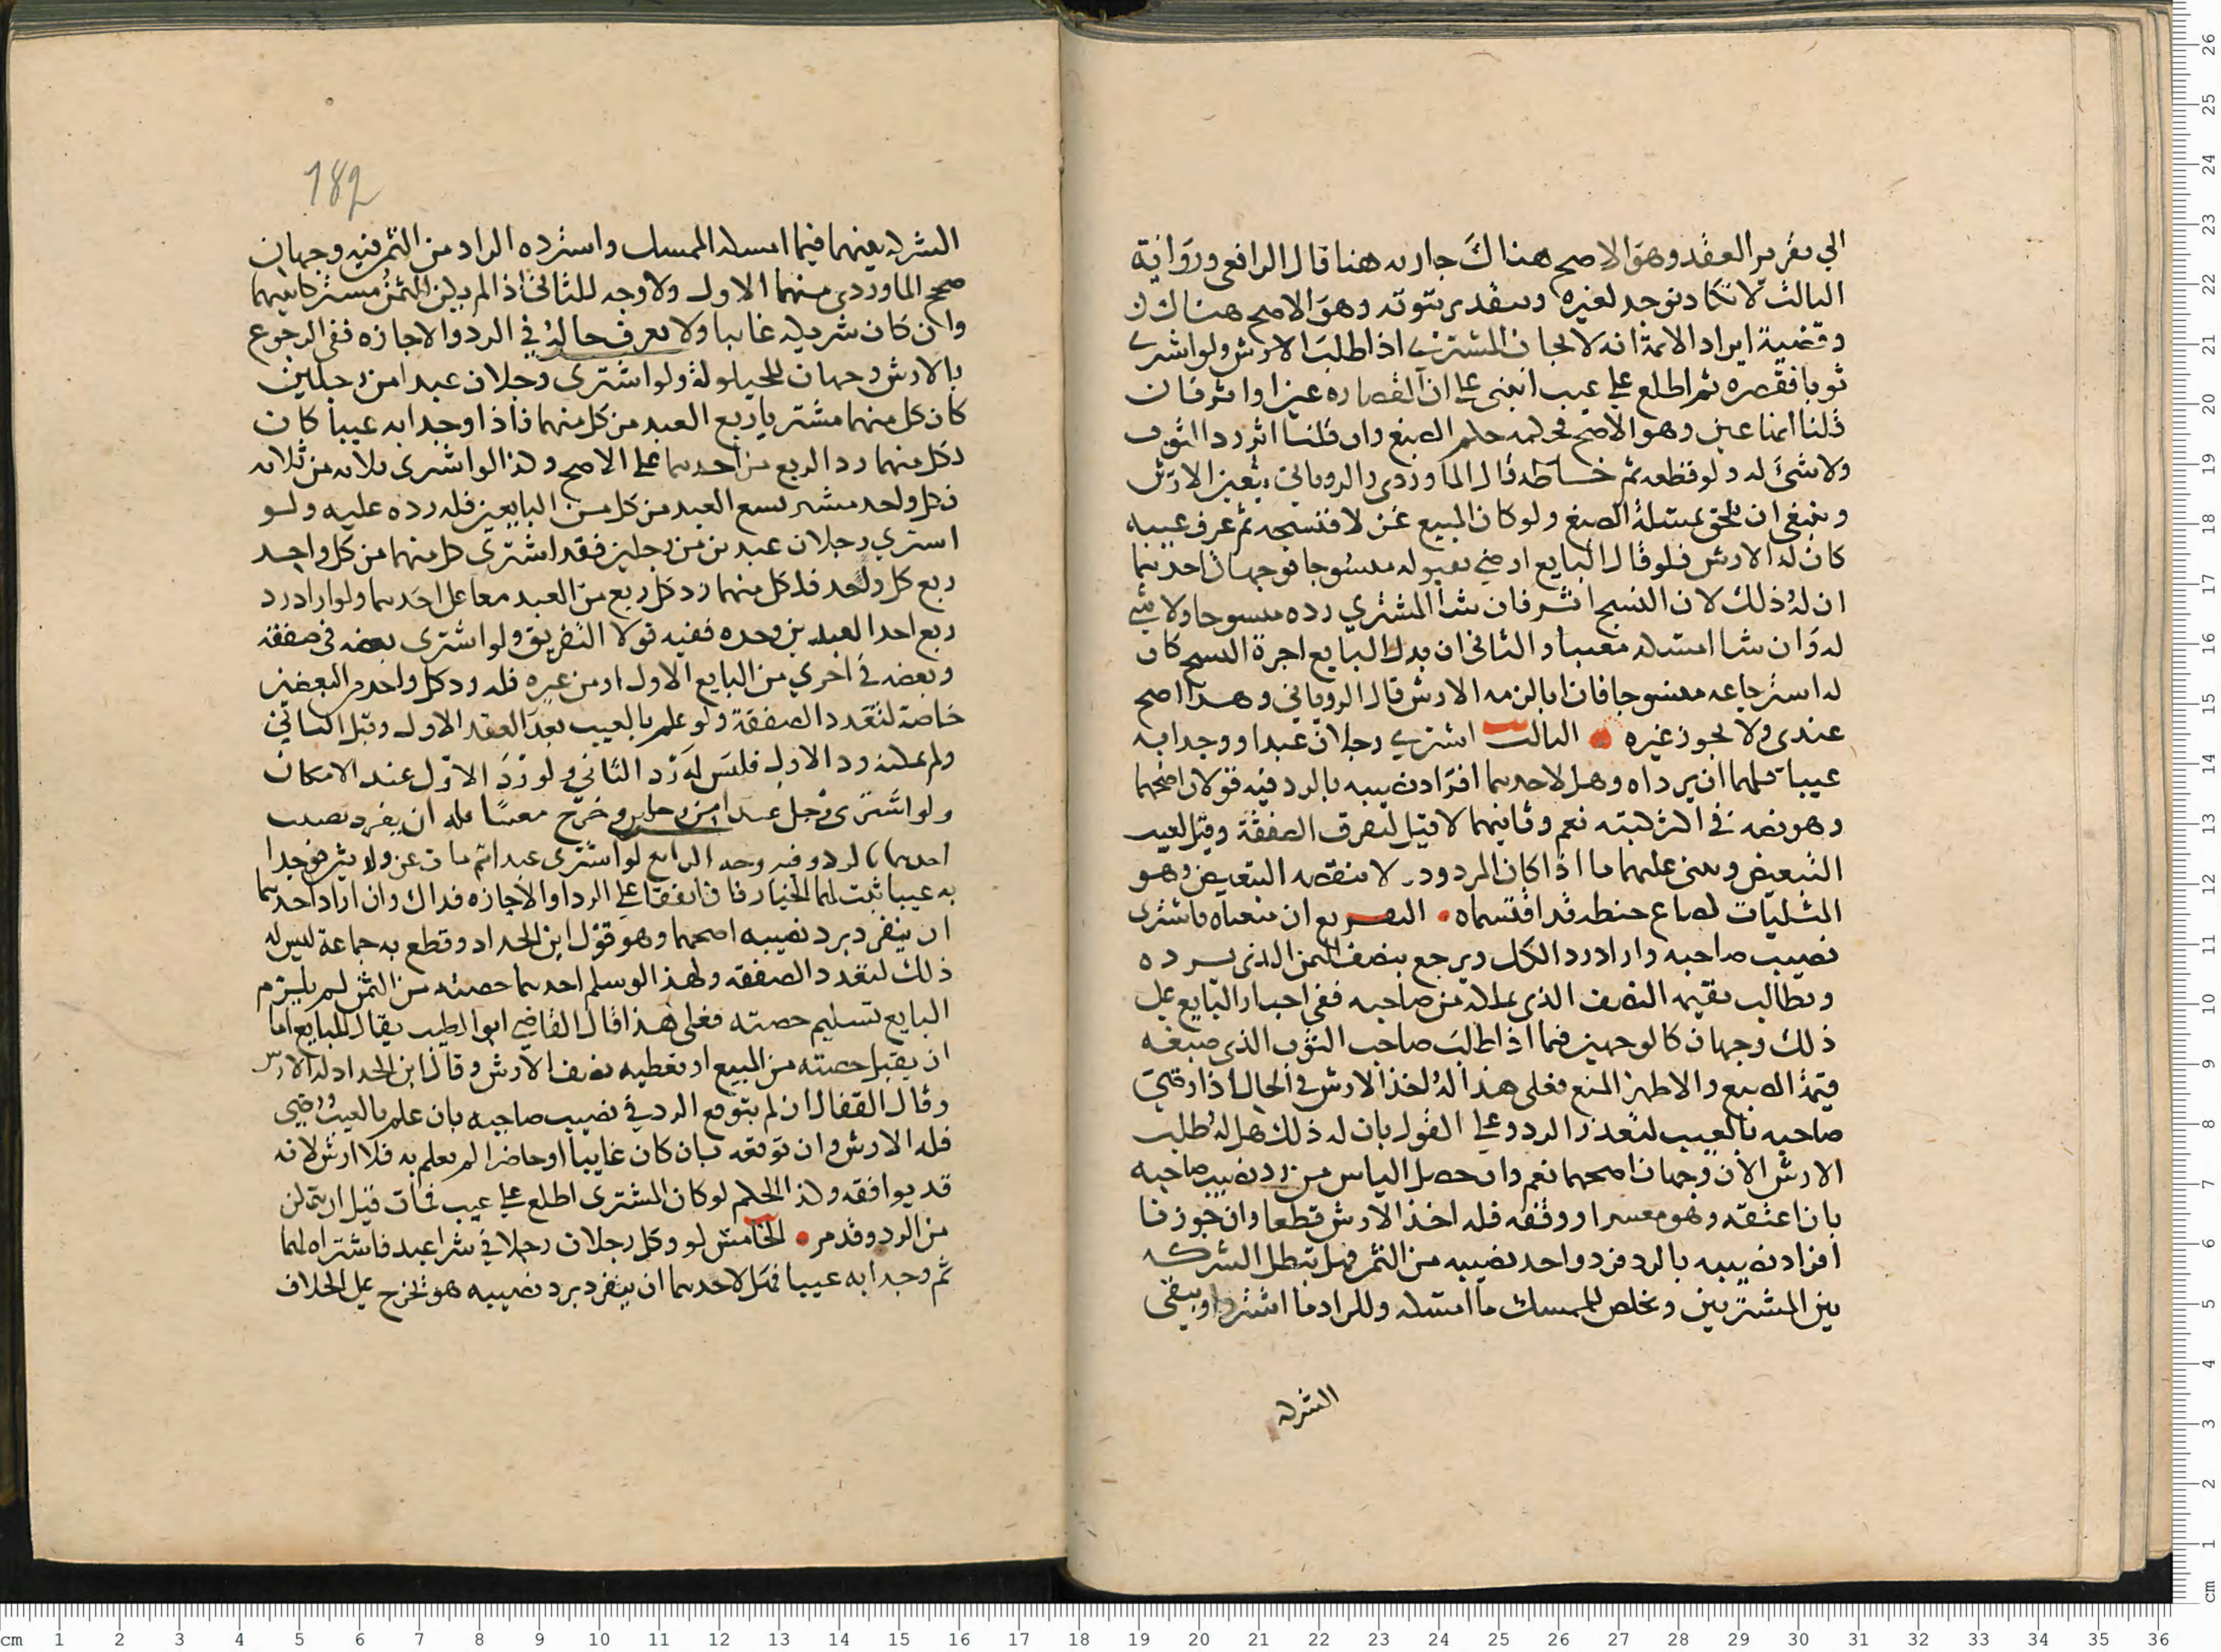 الي تقرير العقد وهو الاصح هناك جاريه هنا قال الرافعي ورواية
الثالث لا تكاد توجد لغيره وبتقدير ثبوته وهو الاصح هناك
وقضية ايراد الايمة انه لا يجاب المشتري اذا طلب الارش ولو اشترى
ثوبا فقصره ثم اطلع على عيب انبنى على ان القصاره عين او اثر فان
قلنا انها عين وهو الاصح فحكمه حكم الصبغ وان قلنا اثر رد الثوب
ولا شئ له ولو قطعه ثم خاطه قال الماوردي والروياني يتعين الارش
وينبغي ان يلحق بمسئلة الصبغ ولو كان المبيع غزلا فنسجه ثم عرف عيبه
كان له الارش فلو قال البايع ارضى بقبوله منسوجا فوجهان احدهما
ان له ذلك لان النسج اثر فان شا المشتري رده منسوجا ولا شي
له وان شا امسكه معيبا والثاني ان بدل البايع اجرة النسج كان
له استرجاعه منسوجا فان ابا لزمه الارش قال الروياني وهذا اصح
عندي ولا يجوز غيره الثالث اشترى رجلان عبدا ووجدا به
عيبا فلهما ان يرداه وهل لاحدهما افراد نصيبه بالرد فيه قولان اصحهما
وهو نصه في اكثر كتبه نعم وثانيهما لا قيل لتفرق الصفقة وقيل لعيب
التبعيض وبنى عليهما ما اذا كان المردود لا ينقصه التبعيض وهو
المثليات كصاع حنطه قد اقتسماه التفريع ان منعناه فاشترى
نصيب صاحبه واراد رد الكل ويرجع بنصف الثمن الذي يرده
ويطالب بقيمه النصف الذي تملكه من صاحبه ففي اجبار البايع على
ذلك وجهان كالوجهين فيما اذا طلب صاحب الثوب الذي صبغه
قيمة الصبغ والاظهر المنع فعلى هذا له اخذ الارش في الحال اذا رضي
صاحبه بالعيب لتعذر الرد وعلى القول بان له ذلك هل له طلب
الارش الان وجهان اصحهما نعم وان حصل الياس من رد نصيب صاحبه
بان اعتقه وهو معسر او وقفه فله اخذ الارش قطعا وان جوزنا
افراد نصيبه بالرد فرد واحد نصيبه من الثمر فهل تبطل الشركه
بين المشتريين ويخلص للممسك ما امسكه وللراد ما استرد او يبقى
الشركه
182
الشركه بينهما فيما امسكه الممسك واسترده الراد من الثمن فيه وجهان
صحح الماوردي منهما الاول ولا وجه للثاني اذا لم يكن الثمن مشتركا بينهما
وان كان شريكه غايبا ولا يعرف حاله في الرد والاجازه ففي الرجوع
بالارش وجهان للحيلولة ولو اشترى رجلان عبدا من رجلين
كان كل منهما مشتريا ربع العبد من كل منهما فاذا وجدا به عيبا كان
لكل منهما رد الربع من احدهما على الاصح وكذا لو اشترى ثلاثه من ثلاثه
فكل واحد مشتر تسع العبد من كل من البايعين فله رده عليه ولو
اشترى رجلان عبدين من رجلين فقد اشترى كل منهما من كل واحد
ربع كل واحد فلكل منهما رد كل ربع من العبد معا على احدهما ولو اراد رد
ربع احد العبدين وحده ففيه قولا التفريق ولو اشترى بعضه في صفقة
وبعضه في اخرى من البايع الاول او من غيره فله رد كل واحد من البعضين
خاصة لتعدد الصفقة ولو علم بالعيب بعد العقد الاول وقبل الثاني
ولم يمكنه رد الاول فليس له رد الثاني ولو رد الاول عند الامكان
ولو اشترى رجل عبدا من رجلين وخرج معيبا فله ان يفرد نصيب
احدهما بالرد وفيه وجه الرابع لو اشترى عبدا ثم مات عن وارثين فوجدا
به عيبا ثبت لهما الخيار فان اتفقا على الرد او الاجازه فذاك وان اراد احدهما
ان ينفرد برد نصيبه اصحهما وهو قول ابن الحداد وقطع به جماعة ليس له
ذلك لتعدد الصفقه ولهذا لو سلم احدهما حصته من الثمن لم يلزم
البايع تسليم حصته فعلى هذا قال القاضي ابو الطيب يقال للبايع اما
ان يقبل حصته من المبيع او تعطيه نصف الارش وقال ابن الحداد له الارش
وقال القفال ان لم يتوقع الرد في نصيب صاحبه بان علم بالعيب ورضى
فله الارش وان توقعه بان كان غايبا او حاضرا لم يعلم به فلا ارش لانه
قد يوافقه وكذا الحكم لو كان المشترى اطلع على عيب فمات قبل ان يتمكن
من الرد وقد مر الخامس لو وكل رجلان رجلا في شرا عبد فاشتراه لهما
ثم وجدا به عيبا فهل لاحدهما ان ينفرد برد نصيبه هو يخرج على الخلاف